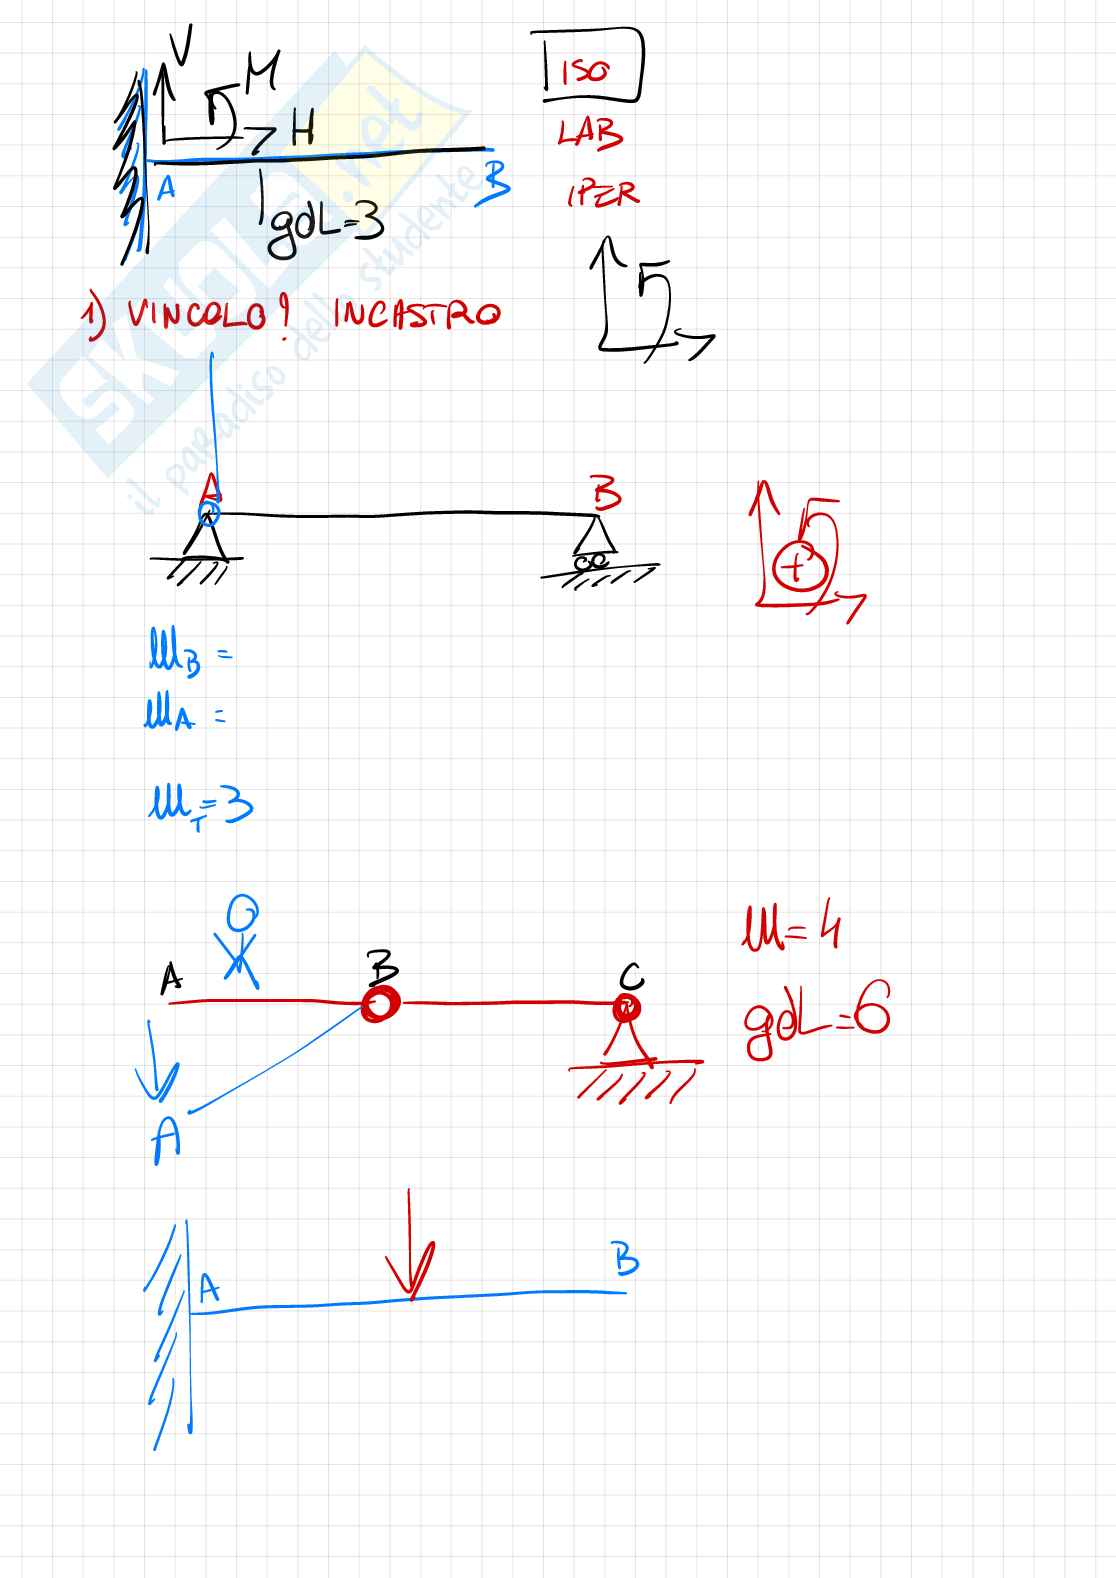 V
M
H
A
B
gdL=3
ISO
LAB
IPER
1) VINCOLO? INCASTRO
SKUOLA.net
il paradiso dello studente
A
B
+
mB =
mA =
mT=3
A
B
C
m=4
gdL=6
A
A
B